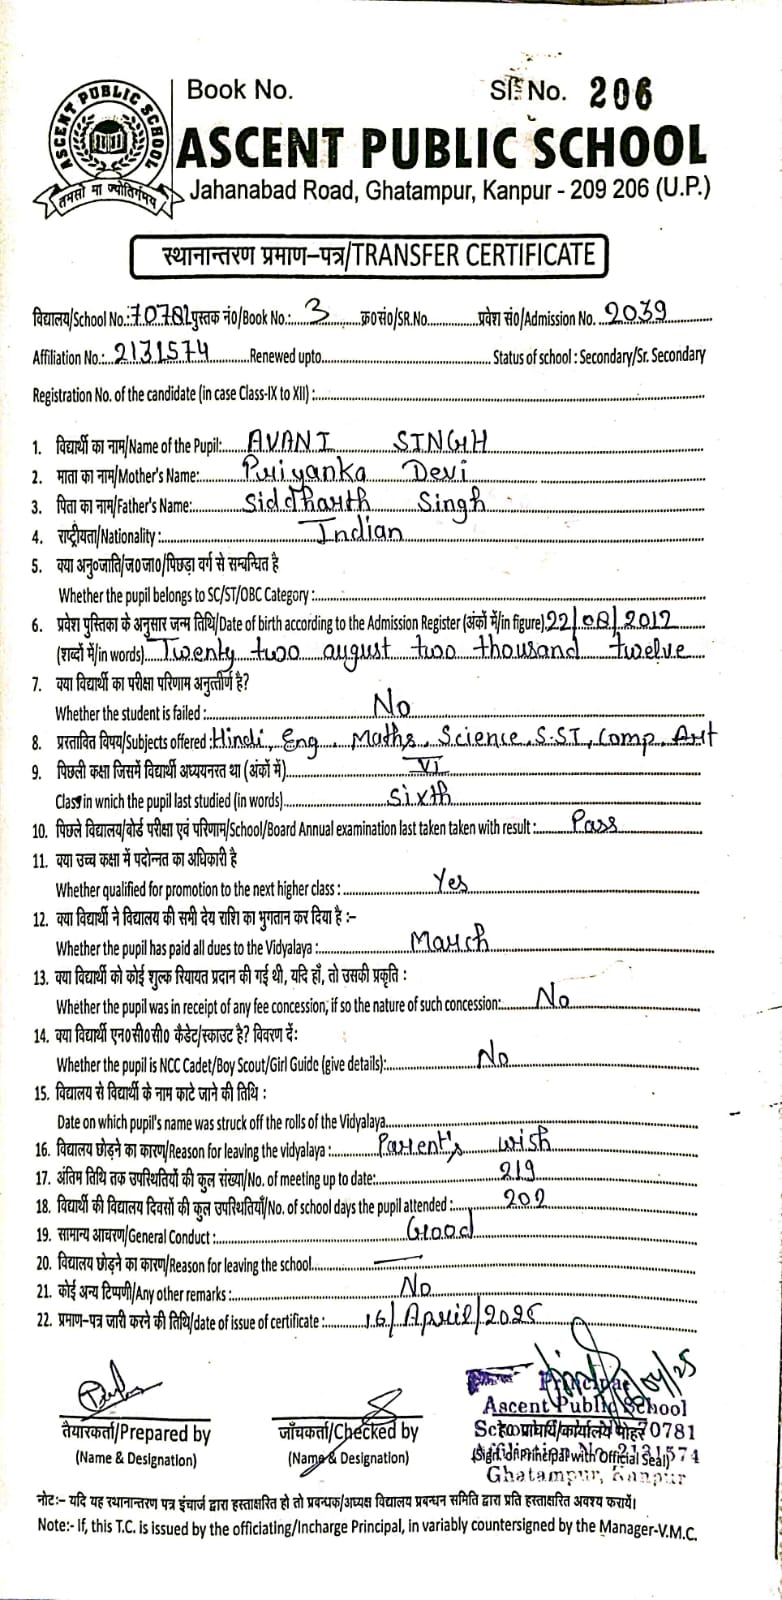 Book No. Sl. No. 206
ASCENT PUBLIC SCHOOL
तमसो मा ज्योतिर्गमय
ASCENT PUBLIC SCHOOL
Jahanabad Road, Ghatampur, Kanpur - 209 206 (U.P.)
स्थानान्तरण प्रमाण-पत्र/TRANSFER CERTIFICATE
विद्यालय/School No.: 70781 पुस्तक नं०/Book No.: 3 क्र०सं०/SR.No. प्रवेश सं०/Admission No. 2039
Affiliation No.: 2131574 Renewed upto Status of school : Secondary/Sr. Secondary
Registration No. of the candidate (in case Class-IX to XII) :
1. विद्यार्थी का नाम/Name of the Pupil: AVANI SINGH
2. माता का नाम/Mother's Name: Priyanka Devi
3. पिता का नाम/Father's Name: Siddharth Singh
4. राष्ट्रीयता/Nationality : Indian
5. क्या अनु०जाति/ज०जा०/पिछड़ा वर्ग से सम्बन्धित है
Whether the pupil belongs to SC/ST/OBC Category :
6. प्रवेश पुस्तिका के अनुसार जन्म तिथि/Date of birth according to the Admission Register (अंकों में/in figure) 22/08/2012
(शब्दों में/in words) Twenty two august two thousand twelve
7. क्या विद्यार्थी का परीक्षा परिणाम अनुत्तीर्ण है?
Whether the student is failed : No
8. प्रस्तावित विषय/Subjects offered : Hindi, Eng, Maths, Science, S.ST, Comp, Art
9. पिछली कक्षा जिसमें विद्यार्थी अध्ययनरत था (अंकों में) VI
Class in wnich the pupil last studied (in words) Sixth
10. पिछले विद्यालय/बोर्ड परीक्षा एवं परिणाम/School/Board Annual examination last taken taken with result : Pass
11. क्या उच्च कक्षा में पदोन्नत का अधिकारी है
Whether qualified for promotion to the next higher class : Yes
12. क्या विद्यार्थी ने विद्यालय की सभी देय राशि का भुगतान कर दिया है :-
Whether the pupil has paid all dues to the Vidyalaya : March
13. क्या विद्यार्थी को कोई शुल्क रियायत प्रदान की गई थी, यदि हाँ, तो उसकी प्रकृति :
Whether the pupil was in receipt of any fee concession, if so the nature of such concession: No
14. क्या विद्यार्थी एन०सी०सी० कैडेट/स्काउट है? विवरण दें:
Whether the pupil is NCC Cadet/Boy Scout/Girl Guide (give details): No
15. विद्यालय से विद्यार्थी के नाम काटे जाने की तिथि :
Date on which pupil's name was struck off the rolls of the Vidyalaya
16. विद्यालय छोड़ने का कारण/Reason for leaving the vidyalaya : Parent's wish
17. अंतिम तिथि तक उपस्थितियों की कुल संख्या/No. of meeting up to date: 219
18. विद्यार्थी की विद्यालय दिवसों की कुल उपस्थितियाँ/No. of school days the pupil attended : 202
19. सामान्य आचरण/General Conduct : Good
20. विद्यालय छोड़ने का कारण/Reason for leaving the school —
21. कोई अन्य टिप्पणी/Any other remarks : No
22. प्रमाण-पत्र जारी करने की तिथि/date of issue of certificate : 16/April/2025
Principal
Ascent Public School
तैयारकर्ता/Prepared by जाँचकर्ता/Checked by School No. 70781
(Name & Designation) (Name & Designation) (Sign. of Principal with Official Seal)
Affiliation No. 2131574
Ghatampur, Kanpur
नोट:- यदि यह स्थानान्तरण पत्र इंचार्ज द्वारा हस्ताक्षरित हो तो प्रबन्धक/अध्यक्ष विद्यालय प्रबन्धन समिति द्वारा प्रति हस्ताक्षरित अवश्य करायें।
Note:- If, this T.C. is issued by the officiating/Incharge Principal, in variably countersigned by the Manager-V.M.C.